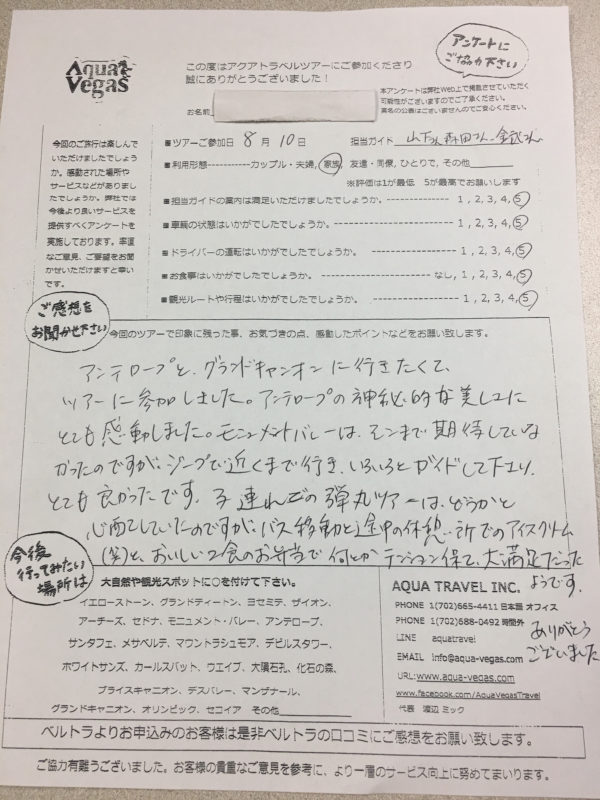 Aqua Vegas
この度はアクアトラベルツアーにご参加くださり
誠にありがとうございました！
アンケートに
ご協力下さい
本アンケートは弊社Web上で掲載させていただく
可能性がございますのでご了承ください。
実名の公表はございませんのでご安心ください。
お名前
今回のご旅行は楽しんで
いただけましたでしょう
か。感動された場所や
サービスなどがありまし
たでしょうか。弊社では
今後より良いサービスを
提供すべくアンケートを
実施しております。率直
なご意見、ご要望をお聞
かせいただけますと幸い
です。
■ツアーご参加日 8 月 10 日 担当ガイド 山下さん 森田さん、金武さん
■利用形態-----------カップル・夫婦, 家族, 友達・同僚, ひとりで, その他
※評価は1が最低 5が最高でお願いします
■担当ガイドの案内は満足いただけましたでしょうか。--------------- 1 , 2, 3, 4, 5
■車輌の状態はいかがでしたでしょうか。------------------------ 1 , 2, 3, 4, 5
■ドライバーの運転はいかがでしたでしょうか。------------------- 1 , 2, 3, 4, 5
■お食事はいかがでしたでしょうか。---------------------- なし, 1, 2, 3, 4, 5
■観光ルートや行程はいかがでしたでしょうか。------------------- 1, 2, 3, 4, 5
ご感想を
お聞かせ下さい
今回のツアーで印象に残った事、お気づきの点、感動したポイントなどをお願い致します。
アンテロープと、グランドキャンオンに行きたくて、
ツアーに参加しました。アンテロープの神秘的な美しさに
とても感動しました。モニュメントバレーは、そこまで期待していな
かったのですが、ジープで近くまで行き、いろいろとガイドして下さり、
とても良かったです。子連れでの弾丸ツアーは、どうかと
心配していたのですが、バス移動と途中の休憩所でのアイスクリーム
(笑)と、おいしい2食のお弁当で何とかテンション保て、大満足だった
ようです。
ありがとう
ございました
今後
行ってみたい
場所は
大自然や観光スポットに○を付けて下さい。
イエローストーン、グランドティートン、ヨセミテ、ザイオン、
アーチーズ、セドナ、モニュメント・バレー、アンテロープ、
サンタフェ、メサベルテ、マウントラシュモア、デビルスタワー、
ホワイトサンズ、カールスバット、ウエイブ、大隕石孔、化石の森、
ブライスキャニオン、デスバレー、マンザナール、
グランドキャニオン、オリンピック、セコイア その他
AQUA TRAVEL INC.
PHONE 1(702)665-4411 日本語 オフィス
PHONE 1(702)688-0492 時間外
LINE aquatravel
EMAIL info@aqua-vegas.com
URL:www.aqua-vegas.com
www.facebook.com/AquaVegasTravel
代表 渡辺 ミック
ベルトラよりお申込みのお客様は是非ベルトラの口コミにご感想をお願い致します。
ご協力有難うございました。お客様の貴重なご意見を参考に、より一層のサービス向上に努めてまいります。